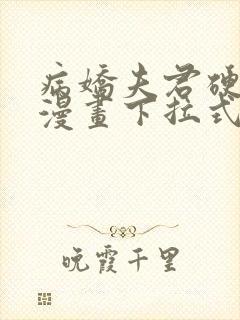 病嬌夫君硬
漫畫下拉式
晚霞千里